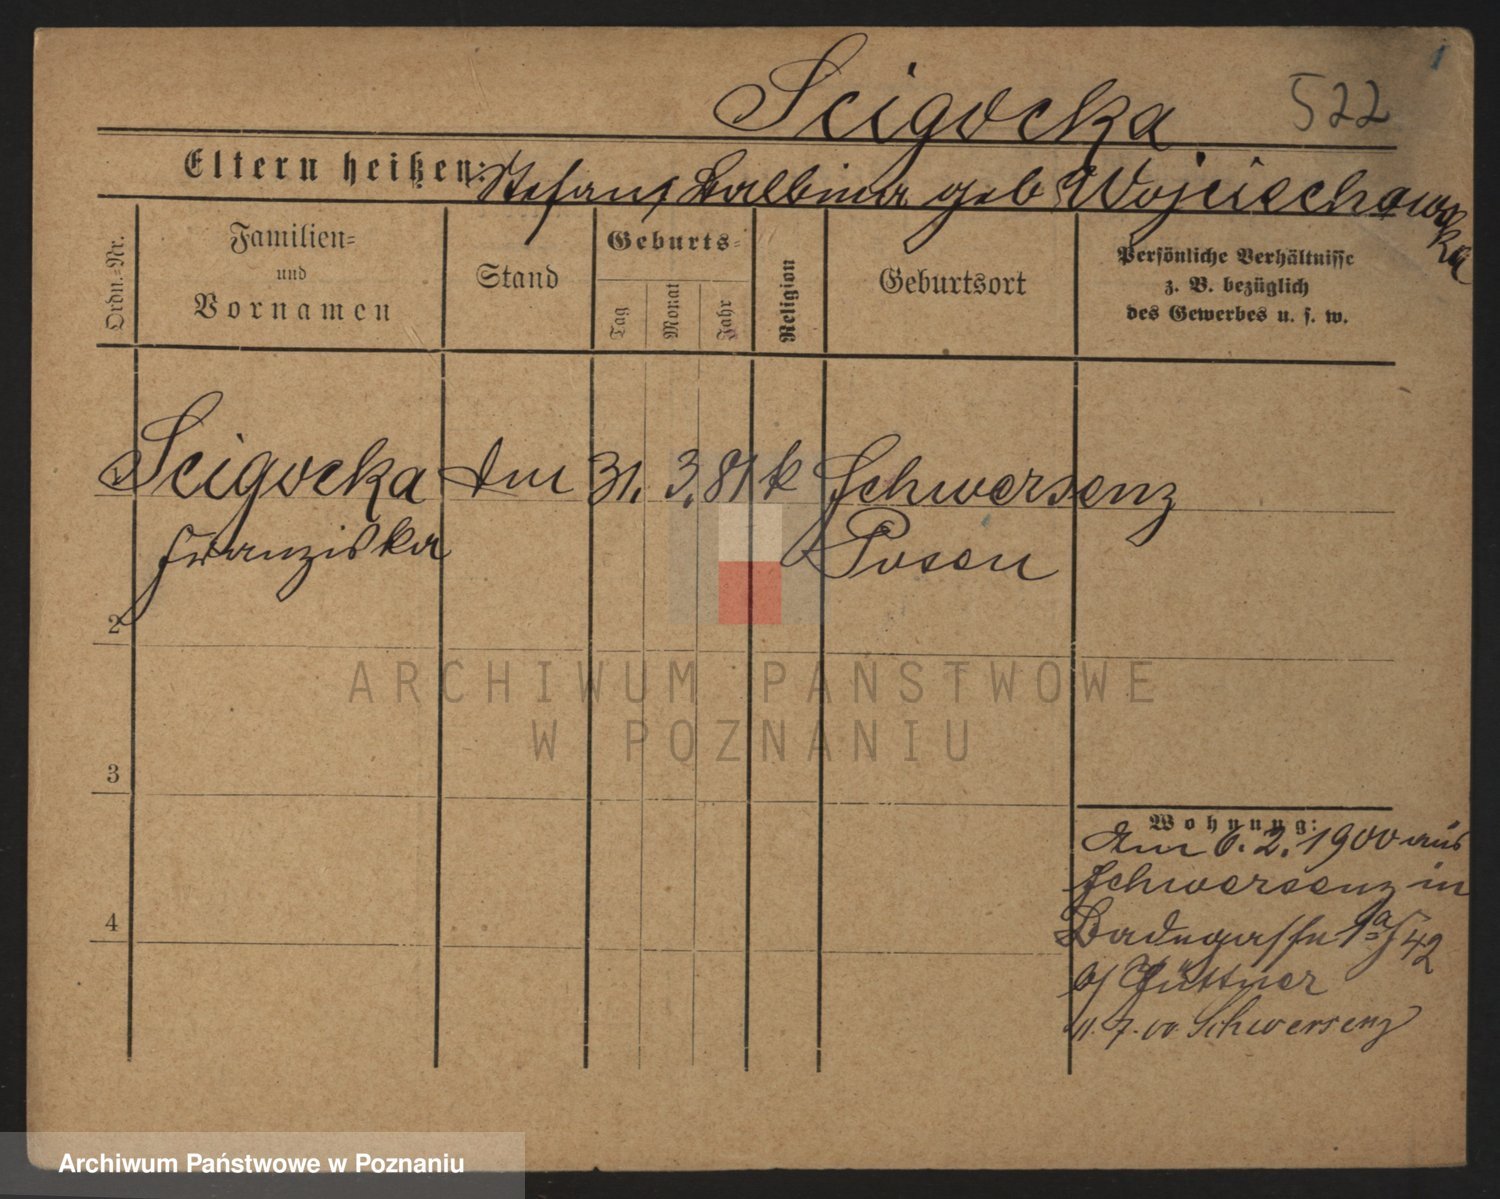 1
Scigocka 522
Eltern heißen: Stefan, Balbina geb Wojciechowska
Ordn.=Nr.
Familien=
und
Vornamen
Stand
Geburts=
Tag
Monat
Jahr
Religion
Geburtsort
Persönliche Verhältnisse
z. B. bezüglich
des Gewerbes u. s. w.
1 Scigocka 31. 3. 81 k Schwersenz
Franziska Posen
2
3
4
Wohnung:
Am 6. 2. 1900 aus
Schwersenz in
42
b/ Büttner
11.7.00 Schwersenz
ARCHIWUM PAŃSTWOWE
W POZNANIU
Archiwum Państwowe w Poznaniu